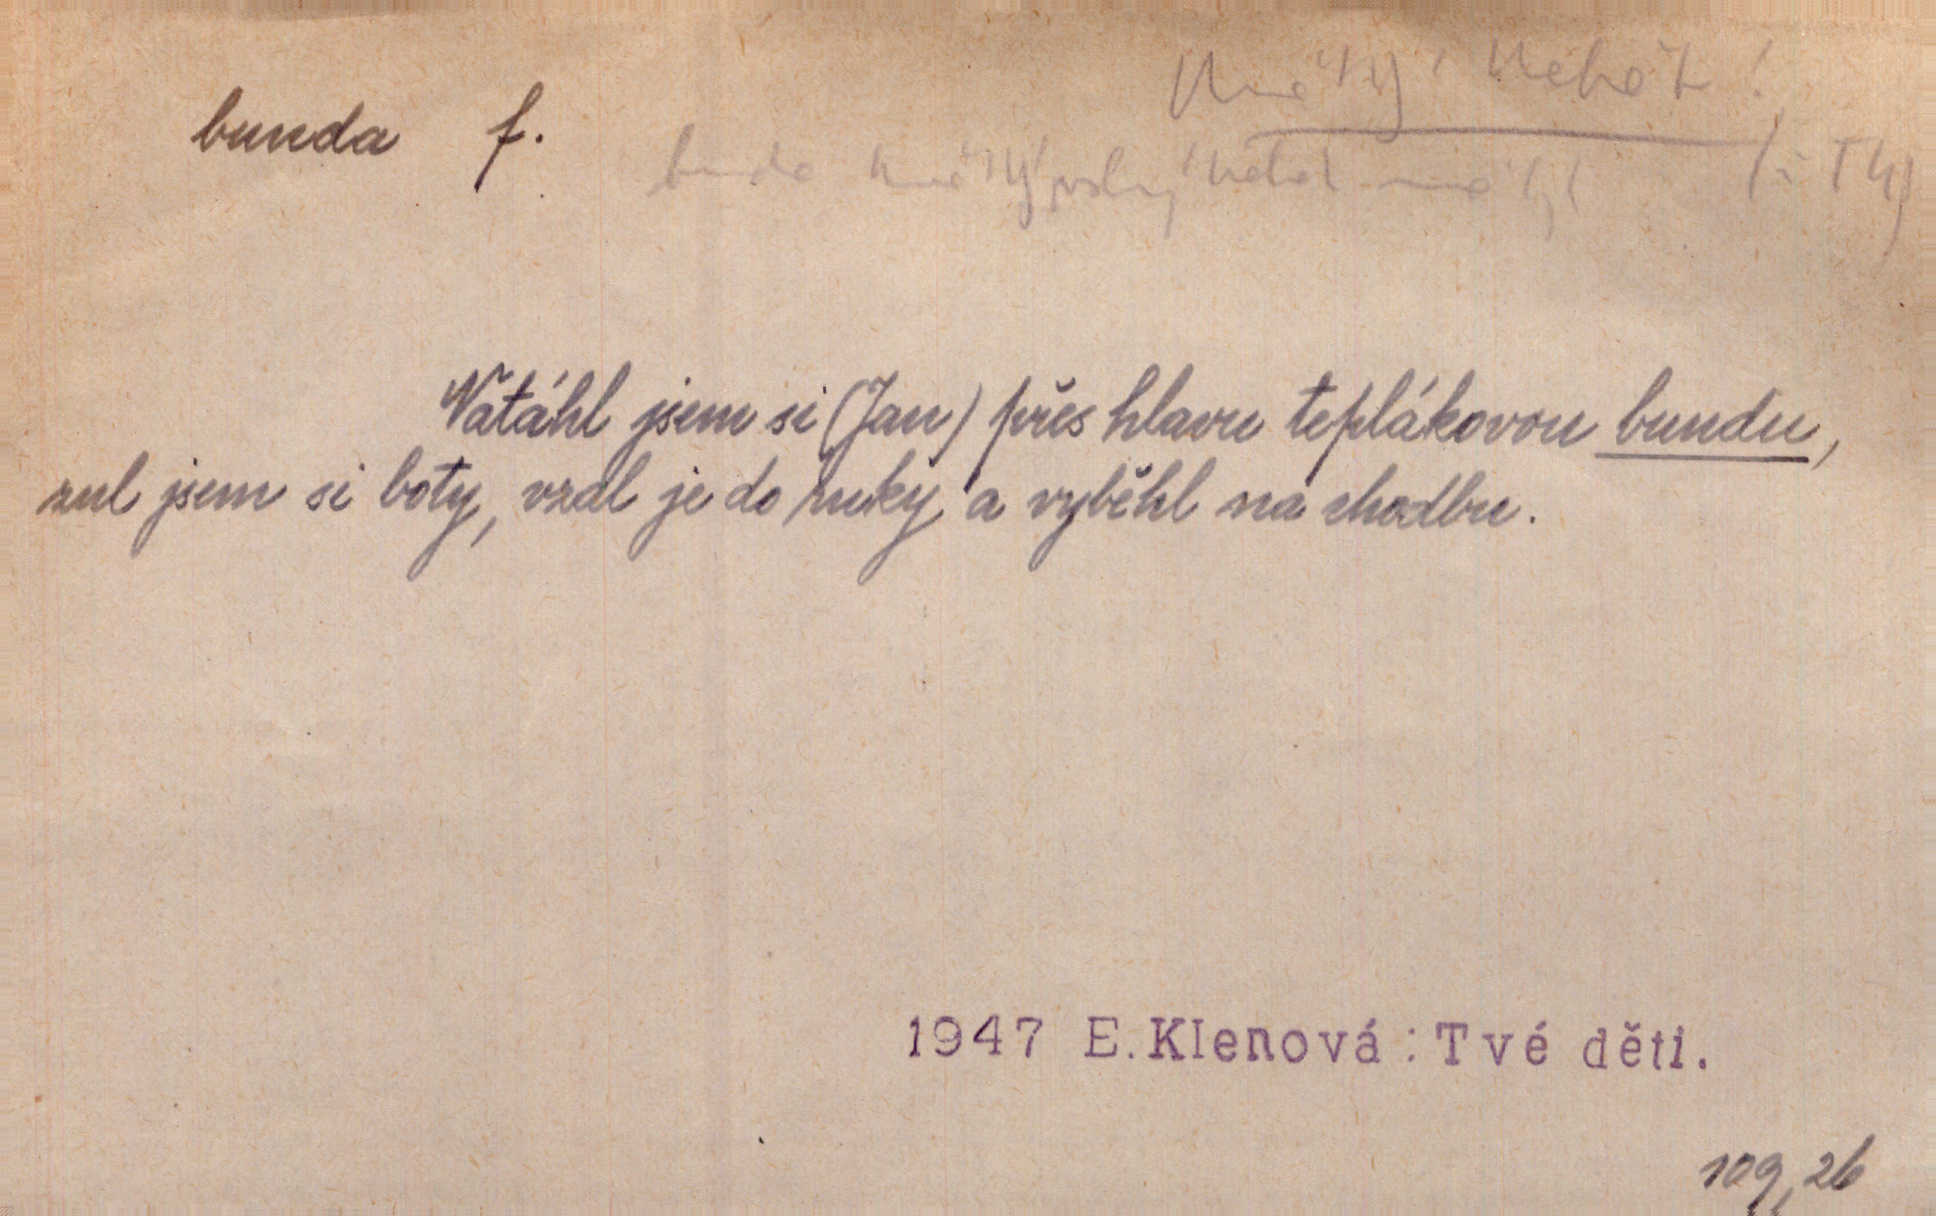 bunda f.
Natáhl jsem si (Jan) přes hlavu teplákovou bundu,
zul jsem si boty, vzal je do ruky a vyběhl na chodbu.
1947 E.Klenová: Tvé děti.
109,26